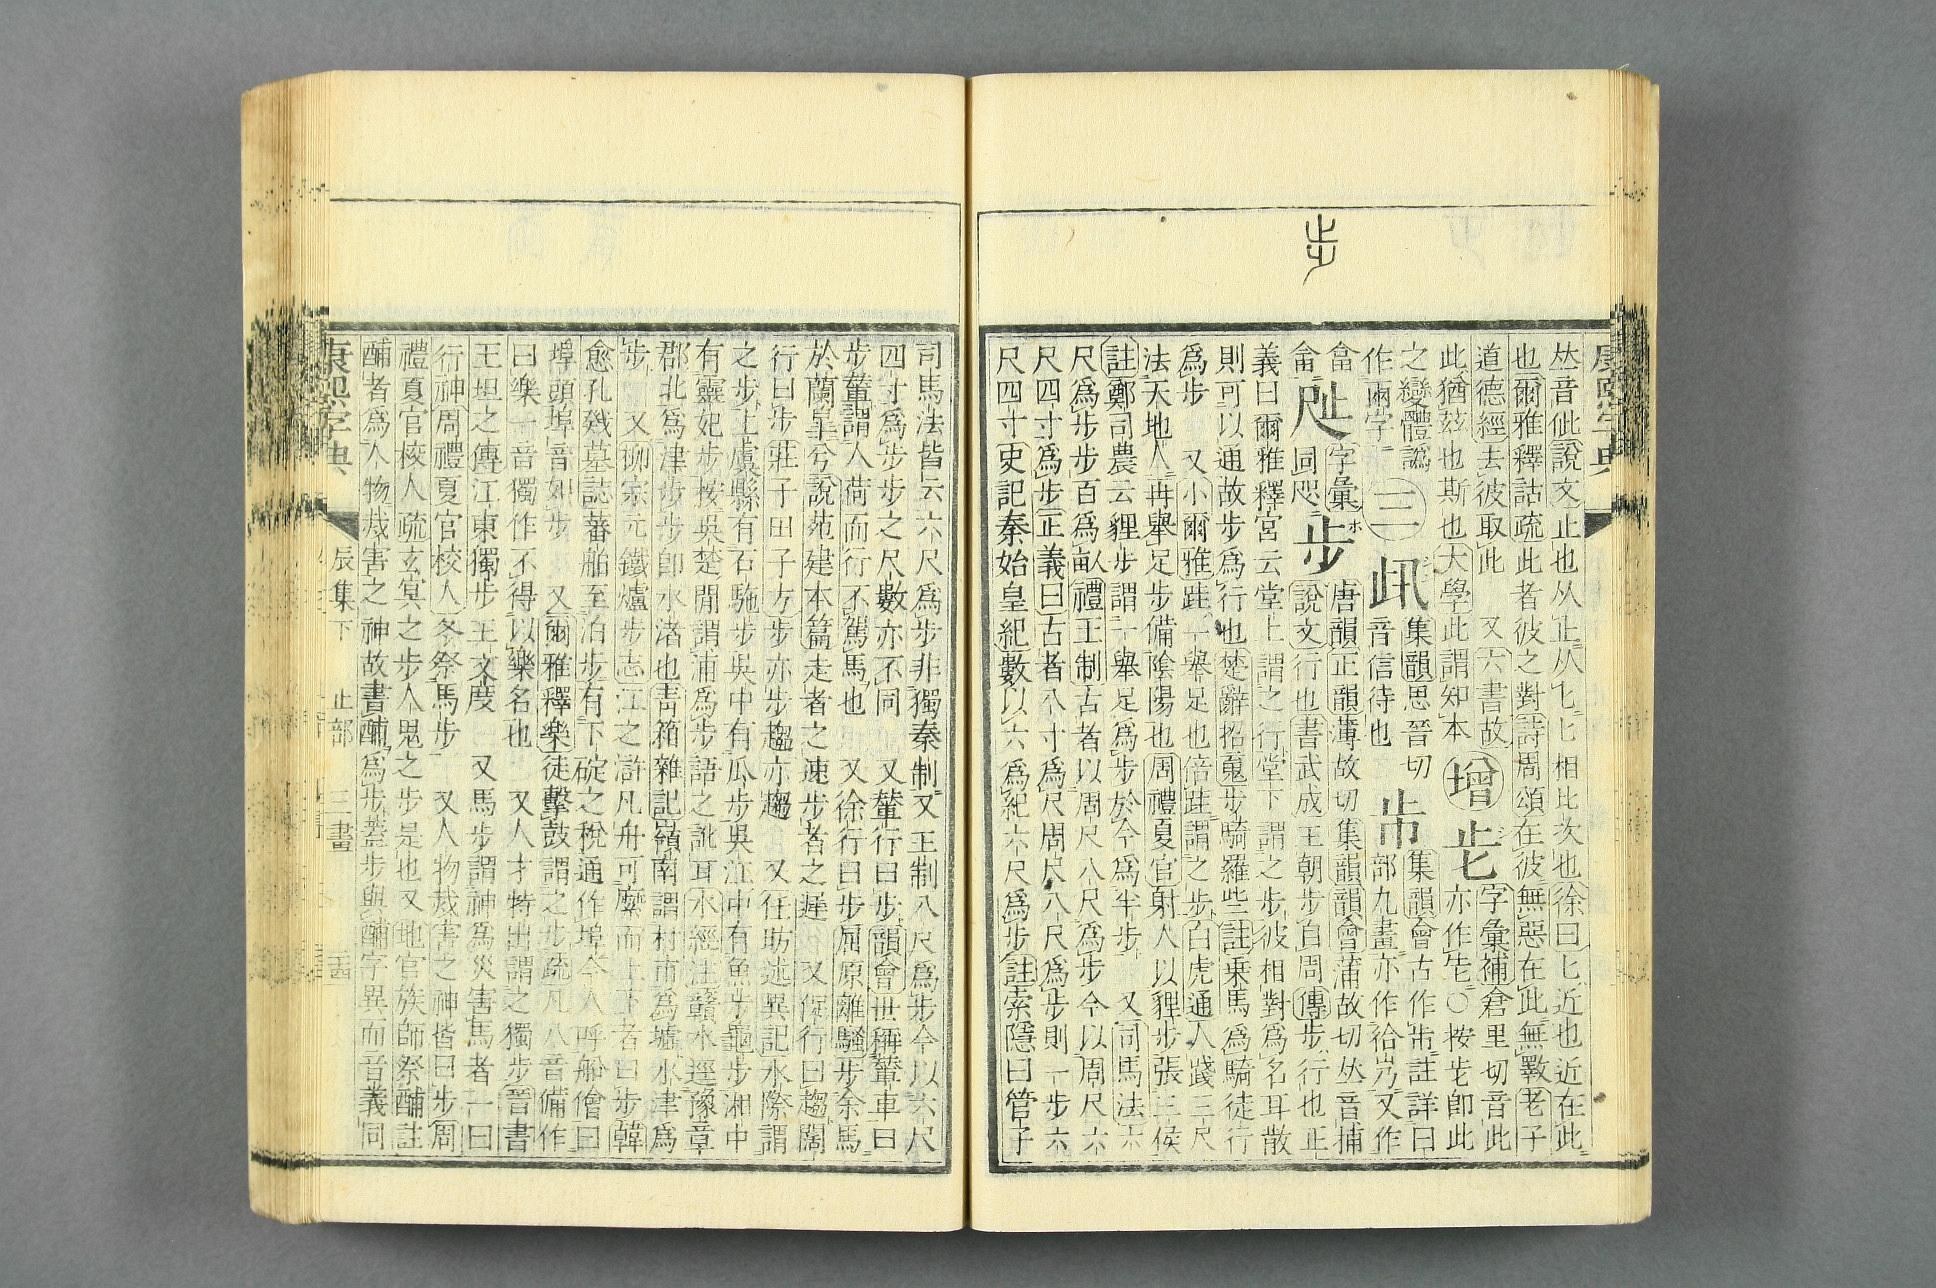 步
康熙字典
𠀤音佌說文止也从止从匕匕相比次也徐曰匕近也近在此
也爾雅釋詁疏此者彼之對詩周頌在彼無惡在此無斁老子
道德經去彼取此 又六書故
此猶茲也斯也大學此謂知本
增
字彙補倉里切音此
亦作 〇按 卽此
之變體譌
作兩字
三
集韻思晉切
音信待也
歬
集韻會古作歬註詳曰
部九畫亦作 又作
字彙
同咫
步
唐韻正韻薄故切集韻韻會蒲故切𠀤音捕
說文行也書武成王朝步自周傳步行也正
義曰爾雅釋宮云堂上謂之行堂下謂之步彼相對爲名耳散
則可以通故步爲行也楚辭招䰟步騎羅些註乗馬爲騎徒行
爲步 又小爾雅跬一舉足也倍跬謂之步白虎通人踐三尺
法天地人再舉足步備陰陽也周禮夏官射人以貍步張三侯
註鄭司農云貍步謂一舉足爲步於今爲半步 又司馬法六
尺爲步步百爲畝禮王制古者以周尺八尺爲步今以周尺六
尺四寸爲步正義曰古者八寸爲尺周尺八尺爲步則一步六
尺四寸史記秦始皇紀數以六爲紀六尺爲步註索隱曰管子
司馬法皆云六尺爲步非獨秦制又王制八尺爲步今以六尺
四寸爲步步之尺數亦不同 又輦行曰步韻會世稱輦車曰
步輦謂人荷而行不駕馬也 又徐行曰步屈原離騷步余馬
於蘭臯兮說苑建本篇走者之速步者之遲 又促行曰趨闊
行曰步莊子田子方步亦步趨亦趨 又任昉述異記水際謂
之步上虞縣有石駞步吳中有瓜步吳江中有魚步龜步湘中
有靈妃步按吳楚閒謂浦爲步語之訛耳水經注贛水逕豫章
郡北爲津步步卽水渚也靑箱雜記嶺南謂村市爲墟水津爲
步 又柳宗元鐵爐步志江之滸凡舟可縻而上下者曰步韓
愈孔戣墓誌蕃舶至泊步有下碇之稅通作埠今人呼船儈曰
埠頭埠音如步 又爾雅釋樂徒擊鼓謂之步疏凡八音備作
曰樂一音獨作不得以樂名也 又人才特出謂之獨步晉書
王坦之傳江東獨步王文度 又馬步謂神爲災害馬者一曰
行神周禮夏官校人冬祭馬步 又人物烖害之神皆曰步周
禮夏官校人疏玄冥之步人鬼之步是也又地官族師祭酺註
酺者爲人物烖害之神故書酺爲步蓋步與酺字異而音義同
康熙字典 辰集下 止部 三畫